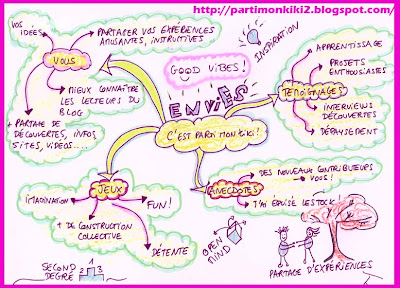 http://partimonkiki2.blogspot.com/
VOS
IDÉES
PARTAGER VOS EXPÉRIENCES
AMUSANTES, INSTRUCTIVES
VOUS
MIEUX CONNAÎTRE
LES LECTEURS DU
BLOG
+ PARTAGE DE
DÉCOUVERTES, INFOS
SITES, VIDÉOS....
GOOD VIBES!
INSPIRATION
ENVIES
C'EST PARTI MON KIKI!
APPRENTISSAGE
PROJETS
ENTHOUSIASTES
TÉMOIGNAGES
INTERVIEWS
DÉCOUVERTES
DÉPAYSEMENT
JEUX
IMAGINATION
FUN!
+ DE CONSTRUCTION
COLLECTIVE
DÉTENTE
ANECDOTES
DES NOUVEAUX CONTRIBUTEURS
VOUS!
J'AI ÉPUISÉ LE STOCK
OPEN
MIND
SECOND
DEGRÉ
2 1 3
PARTAGE D'EXPÉRIENCES